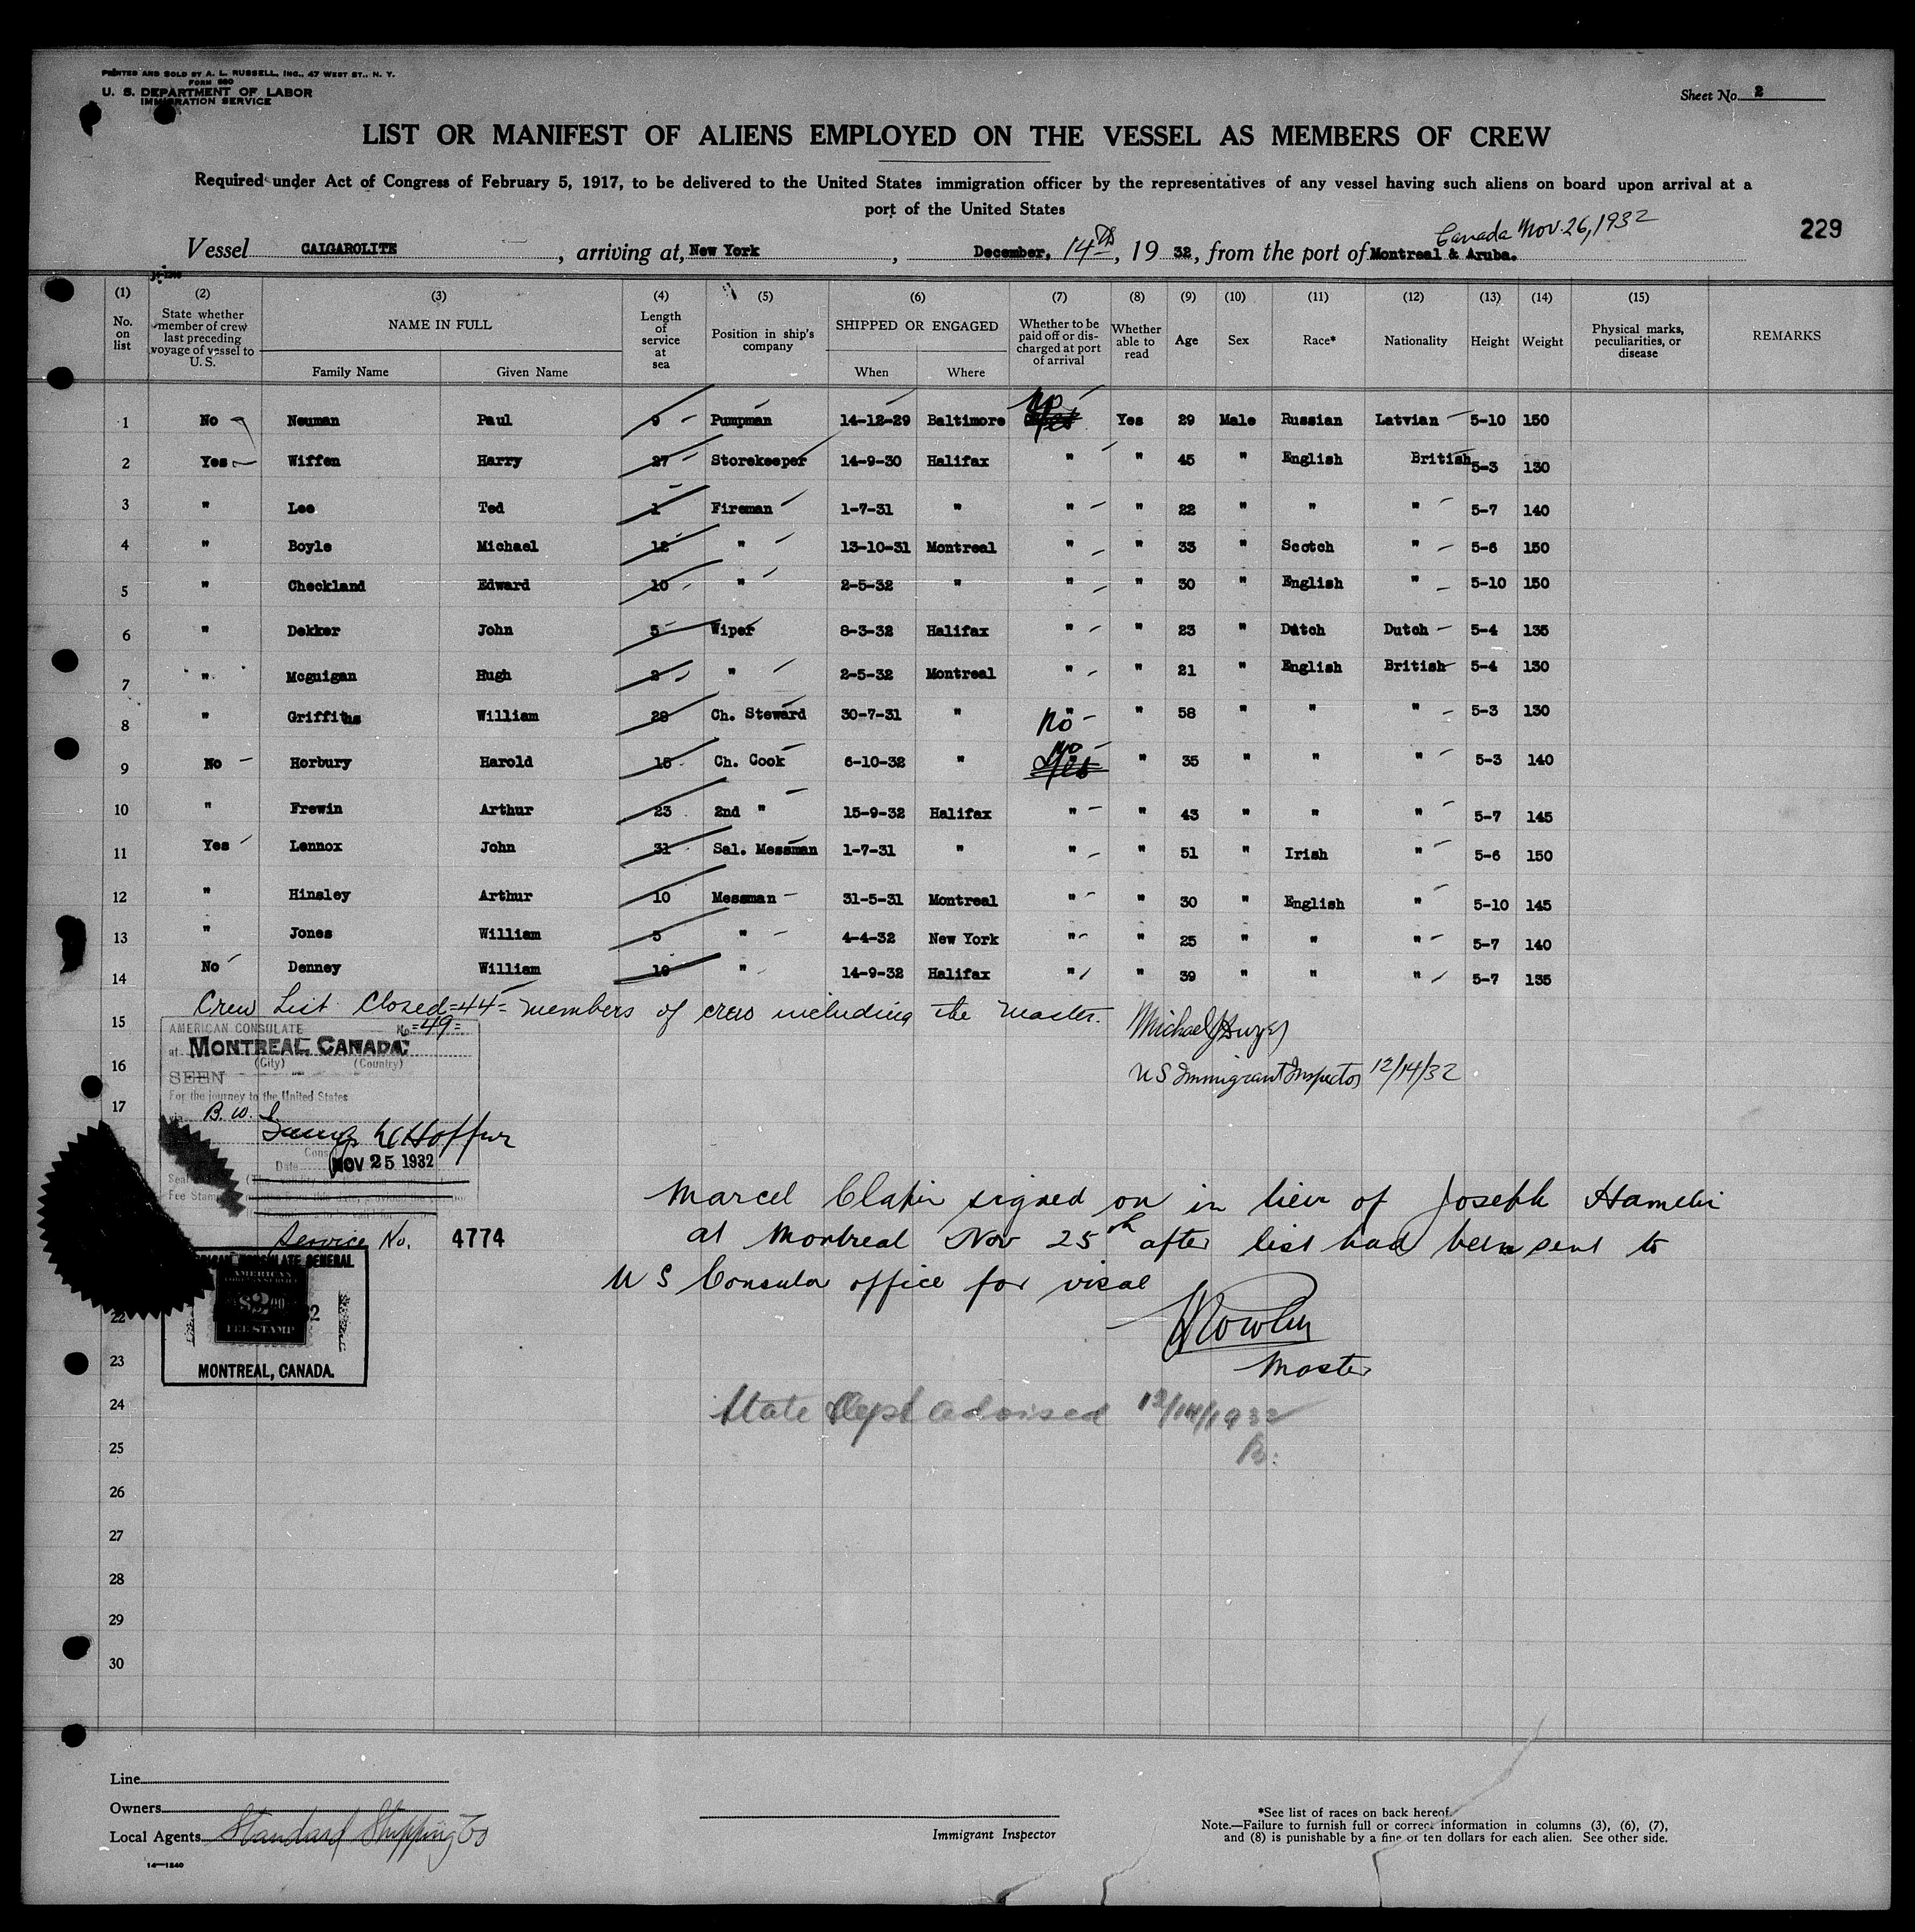 PRINTED AND SOLD BY A. L. RUSSELL, INC., 47 WEST ST., N. Y.
FORM 680
U. S. DEPARTMENT OF LABOR
IMMIGRATION SERVICE
Sheet No. 2
LIST OR MANIFEST OF ALIENS EMPLOYED ON THE VESSEL AS MEMBERS OF CREW
Required under Act of Congress of February 5, 1917, to be delivered to the United States immigration officer by the representatives of any vessel having such aliens on board upon arrival at a
port of the United States
Canada Nov. 26, 1932
229
Vessel CALGAROLITE, arriving at, New York, December, 14th, 19 32, from the port of Montreal & Aruba.
(1) (2) (3) (4) (5) (6) (7) (8) (9) (10) (11) (12) (13) (14) (15)
No. on list
State whether member of crew last preceding voyage of vessel to U. S.
NAME IN FULL
Family Name
Given Name
Length of service at sea
Position in ship's company
SHIPPED OR ENGAGED
When
Where
Whether to be paid off or discharged at port of arrival
Whether able to read
Age
Sex
Race*
Nationality
Height
Weight
Physical marks, peculiarities, or disease
REMARKS
1 No Neuman Paul 9 Pumpman 14-12-29 Baltimore No Yes Yes 29 Male Russian Latvian 5-10 150
2 Yes Wiffen Harry 27 Storekeeper 14-9-30 Halifax " " 45 " English British 5-3 130
3 " Lee Ted 1 Fireman 1-7-31 " " " 22 " " " 5-7 140
4 " Boyle Michael 12 " 13-10-31 Montreal " " 33 " Scotch " 5-6 150
5 " Checkland Edward 10 " 2-5-32 " " " 30 " English " 5-10 150
6 " Dekker John 5 Wiper 8-3-32 Halifax " " 23 " Dutch Dutch 5-4 135
7 " Mcguigan Hugh 2 " 2-5-32 Montreal " " 21 " English British 5-4 130
8 " Griffiths William 28 Ch. Steward 30-7-31 " " No " 58 " " " 5-3 130
9 No Horbury Harold 15 Ch. Cook 6-10-32 " No Yes " 35 " " " 5-3 140
10 " Frewin Arthur 23 2nd " 15-9-32 Halifax " " 43 " " " 5-7 145
11 Yes Lennox John 31 Sal. Messman 1-7-31 " " " 51 " Irish " 5-6 150
12 " Hinsley Arthur 10 Messman 31-5-31 Montreal " " 30 " English " 5-10 145
13 " Jones William 5 " 4-4-32 New York " " 25 " " " 5-7 140
14 No Denney William 10 " 14-9-32 Halifax " " 39 " " " 5-7 135
Crew List Closed =44= members of crew including the Master.
15
AMERICAN CONSULATE No =49=
at MONTREAL CANADA
(City) (Country)
Michael J
US Immigrant Inspector 12/14/32
16
SEEN
For the journey to the United States
17
via B. W.
Hoffer
Cons
Date NOV 25 1932
Seal
Fee Stamp
Marcel signed on in lieu of Joseph Hamelin
at Montreal Nov 25th after list had been sent to
U S Consular office for visal
Service No. 4774
AMERICAN CONSULATE GENERAL
AMERICAN
$2.00
FEE STAMP
MONTREAL, CANADA.
Master
22
23
24
State Dept advised 12/14/1932
B.
25
26
27
28
29
30
Line
Owners
Local Agents Standard Shipping Co
14—1240
Immigrant Inspector
*See list of races on back hereof.
Note.—Failure to furnish full or correct information in columns (3), (6), (7),
and (8) is punishable by a fine of ten dollars for each alien. See other side.